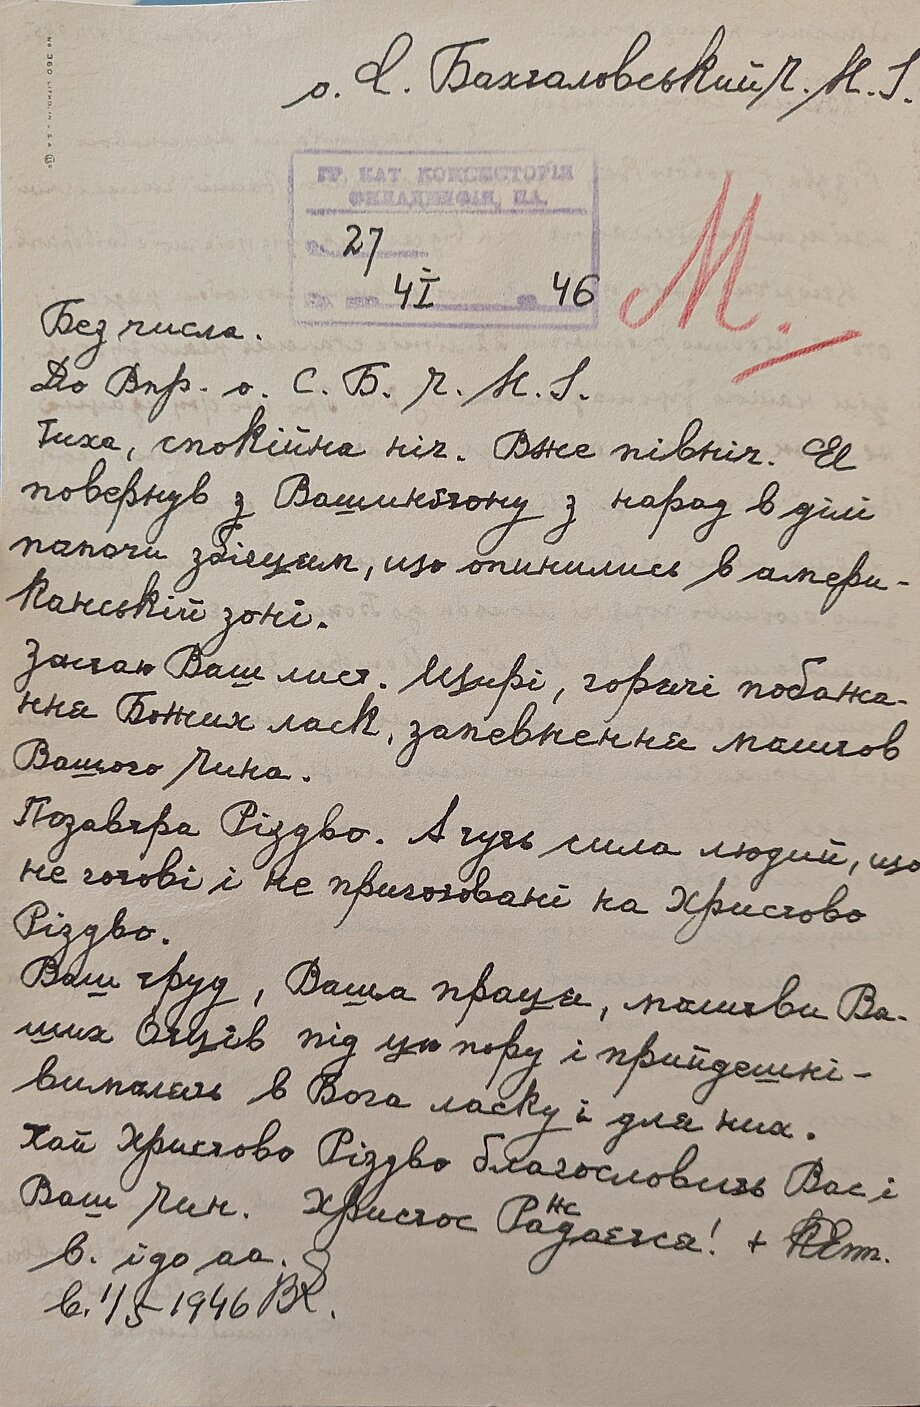 No 360 LITHO. IN U.S.A.
о. С. Бахталовський Ч. Н. І.
ГР. КАТ. КОНСИСТОРІЯ
ФИЛАДЕЛФІЯ, ПА.
27
4 І 46
М.
Без числа.
До Впр. о. С. Б. Ч. Н. І.
Тиха, спокійна ніч. Вже північ. Я
повернув з Вашингтону з нарад в ділі
помочи збігцям, що опинились в амери-
канській зоні.
Застаю Ваш лист. Щирі, горячі побажа-
ння Божих ласк, запевнення молитов
Вашого Чина.
Позавтра Різдво. А тут сила людий, що
не готові і не приготовані на Христово
Різдво.
Ваш труд, Ваша праця, молитви Ва-
ших Отців під цю пору і прийдешні -
вимолять в Бога ласку і для них.
Хай Христово Різдво благословить Вас і
Ваш Чин. Христос Раждаєтся! +
в. і до аа.
в. 1/5-1946 ВК.